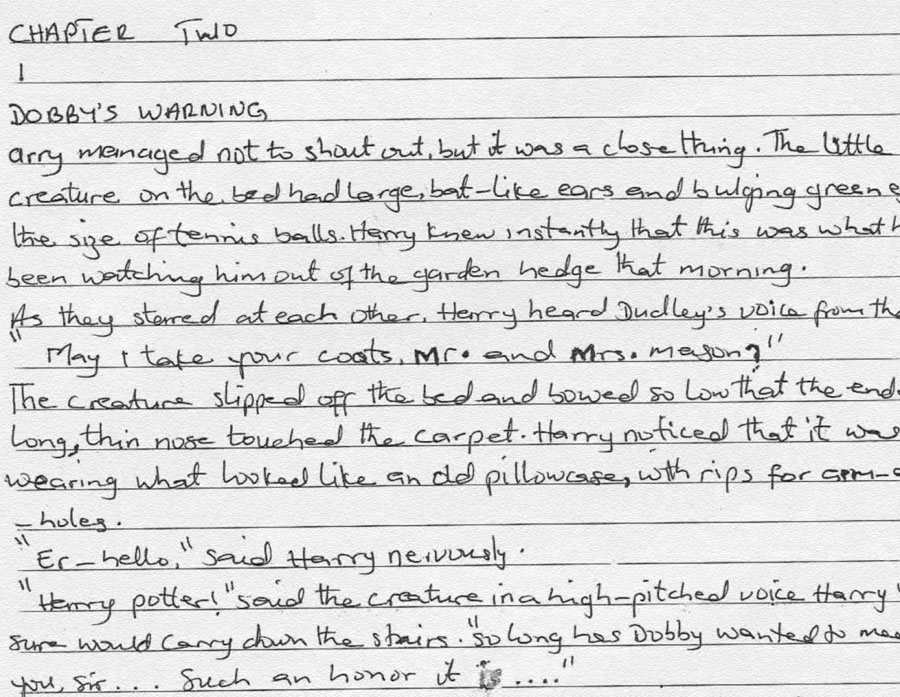 CHAPTER TWO
1
DOBBY'S WARNING
arry managed not to shout out, but it was a close thing. The little
creature on the bed had large, bat-like ears and bulging green e
the size of tennis balls. Harry knew instantly that this was what h
been watching him out of the garden hedge that morning.
As they starred at each other, Harry heard Dudley's voice from the
"May I take your coats, Mr. and Mrs. mason?"
The creature slipped off the bed and bowed so low that the end
long, thin nose touched the carpet. Harry noticed that it was
wearing what looked like an old pillowcase, with rips for arm-a
-holes.
"Er-hello," said Harry nervously.
"Harry potter!" said the creature in a high-pitched voice Harry
sure would carry down the stairs. "so long has Dobby wanted to mee
you, sir... Such an honor it is ...."